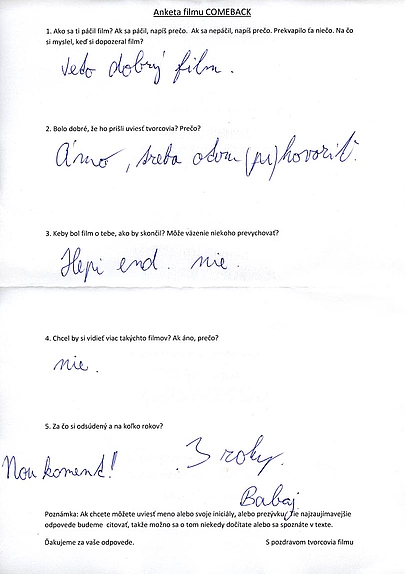 Anketa filmu COMEBACK
1. Ako sa ti páčil film? Ak sa páčil, napíš prečo. Ak sa nepáčil, napíš prečo. Prekvapilo ťa niečo. Na čo
si myslel, keď si dopozeral film?
veto dobrý film.
2. Bolo dobré, že ho prišli uviesť tvorcovia? Prečo?
Áno, treba otom (pri)hovoriť.
3. Keby bol film o tebe, ako by skončil? Môže väzenie niekoho prevychovať?
Hepi end. nie.
4. Chcel by si vidieť viac takýchto filmov? Ak áno, prečo?
nie.
5. Za čo si odsúdený a na koľko rokov?
Nou koment! 3 roky.
Babaj
Poznámka: Ak chcete môžete uviesť meno alebo svoje iniciály, alebo prezývku. najzaujímavejšie
odpovede budeme citovať, takže možno sa o tom niekedy dočítate alebo sa spoznáte v texte.
Ďakujeme za vaše odpovede. S pozdravom tvorcovia filmu